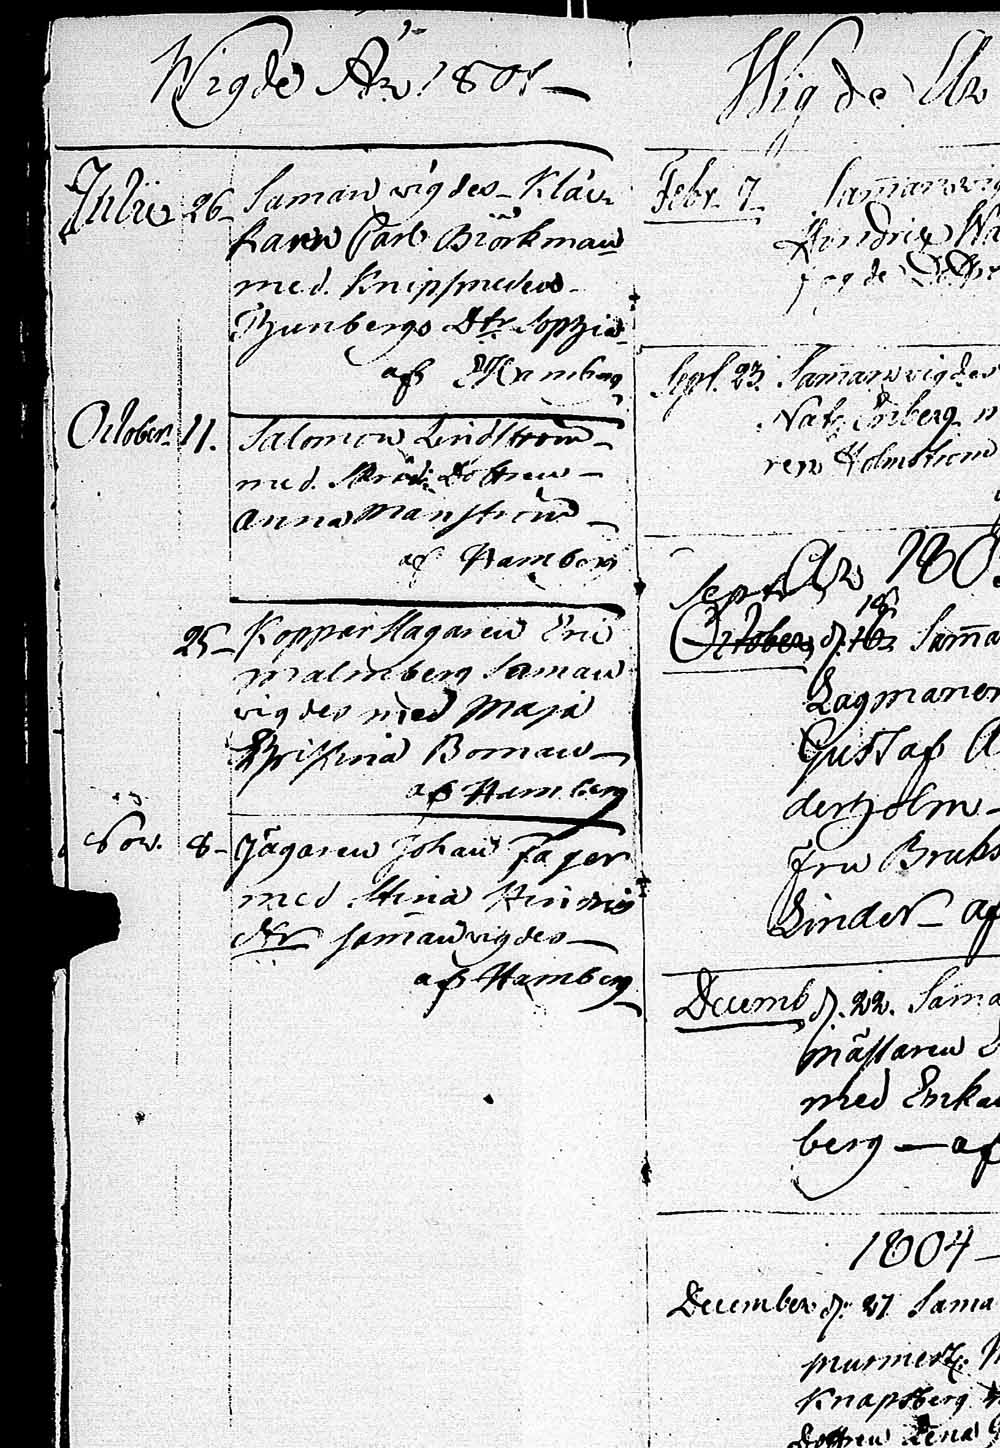 Wigde År 1801
Julii 26 Saman vigdes Kläc-
karen Carl Biörkman
med Knipsmedens
Thunbergs Dtr Sophia
af Hamberg
October 11. Salomon Lindström
med Dottren
Anna Manström
af Hamberg
25 Kopparslagaren Eric
Malmberg Saman
vigdes med Maja
Christina Boman
af Hamberg
Nov. 8 Jägaren Johan Fager
med Stina Hindrics
dtr samanvigdes
af Hamberg
Wigde År
Febr. 7 Samanvig
Hindric
Sept. 23. Samanvigdes
Nat. Enberg
ren Holmström
År 180
Sept
October d. 18 Sama
Lagmanen
Gustaf A
derholm
fru Bruks
Linder af
Decemb d. 22. Sama
mästaren
med Enka
berg af
1804
December d. 27 Sama
murmest.
Knapsberg
Dottren Lena